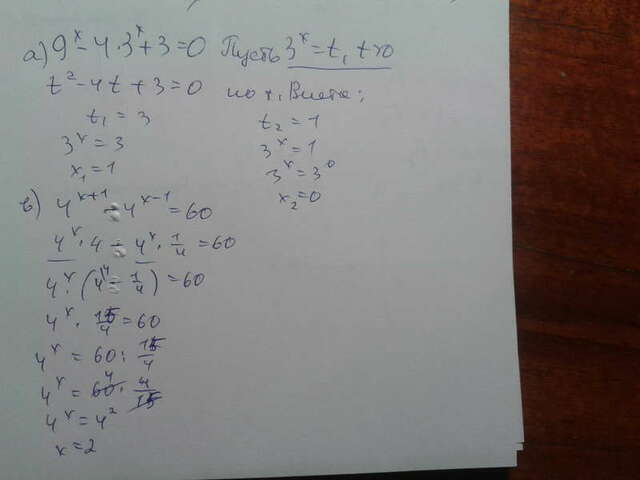 а) 9^x - 4·3^x + 3 = 0 Пусть 3^x = t, t>0
t² - 4t + 3 = 0 по т. Виета:
t₁ = 3 t₂ = 1
3^x = 3 3^x = 1
x₁ = 1 3^x = 3⁰
x₂ = 0
в) 4^(x+1) - 4^(x-1) = 60
4^x · 4 - 4^x · 1/4 = 60
4^x · (4 - 1/4) = 60
4^x · 15/4 = 60
4^x = 60 : 15/4
4^x = 60 · 4/15
4^x = 4²
x = 2